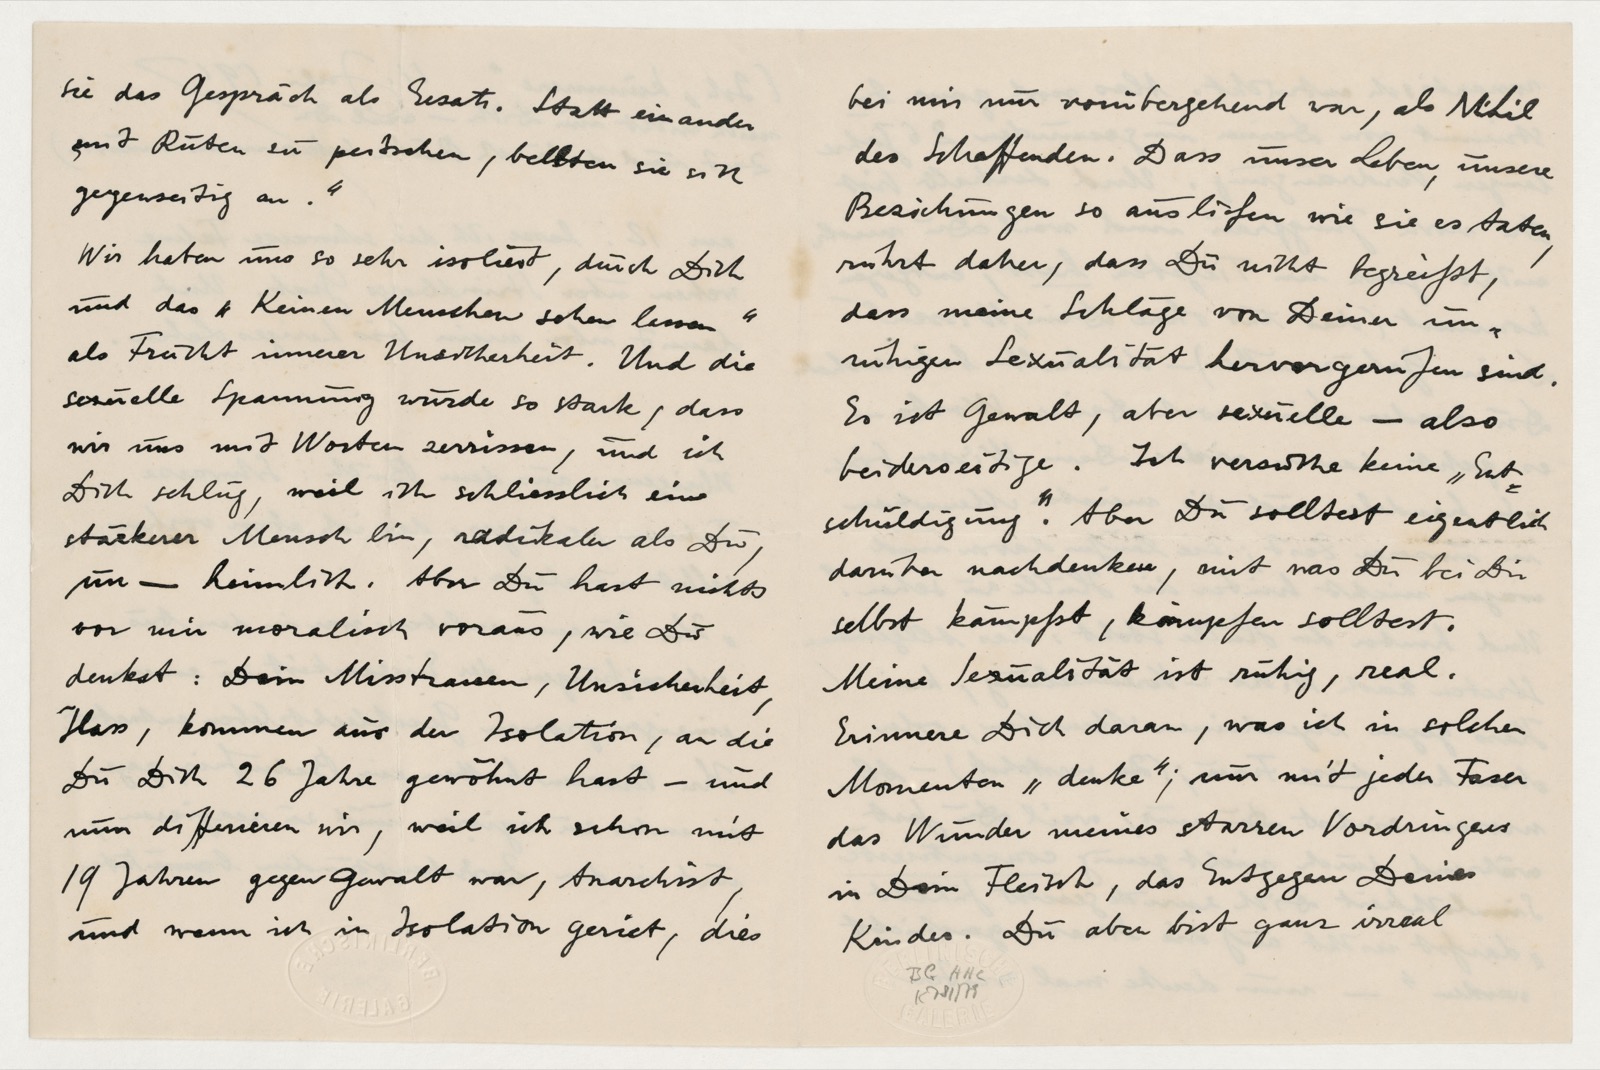 sie das Gespräch als Ersatz. Statt einander
mit Ruten zu peitschen, bellten sie sich
gegenseitig an."
Wir haben uns so sehr isoliert, durch Dich
und das „Keinen Menschen sehen lassen"
als Frucht innerer Unsicherheit. Und die
sexuelle Spannung wurde so stark, dass
wir uns mit Worten zerrissen, und ich
Dich schlug, weil ich schliesslich ein
stärkerer Mensch bin, radikaler als Du,
un — heimlich. Aber Du hast nichts
vor mir moralisch voraus, wie Du
denkst: Dein Misstrauen, Unsicherheit,
Hass, kommen aus der Isolation, an die
Du Dich 26 Jahre gewöhnt hast — und
nun differieren wir, weil ich schon mit
19 Jahren gegen Gewalt war, Anarchist,
und wenn ich in Isolation geriet, dies
bei mir nur vorübergehend war, als Nihil
des Schaffenden. Dass unser Leben, unsere
Beziehungen so ausliefen wie sie es taten,
rührt daher, dass Du nicht begreifst,
dass meine Schläge von Deiner un-
ruhigen Sexualität hervorgerufen sind.
Es ist Gewalt, aber sexuelle — also
beiderseitige. Ich versuche keine „Ent=
schuldigung". Aber Du solltest eigentlich
darüber nachdenken, mit was Du bei Dir
selbst kämpfst, kämpfen solltest.
Meine Sexualität ist ruhig, real.
Erinnere Dich daran, was ich in solchen
Momenten „denke"; nur mit jeder Faser
das Wunder meines starren Vordringens
in Dein Fleisch, das Entgegen Deines
Kindes. Du aber bist ganz irreal
BERLINISCHE
GALERIE
BG HHC
GALERIE